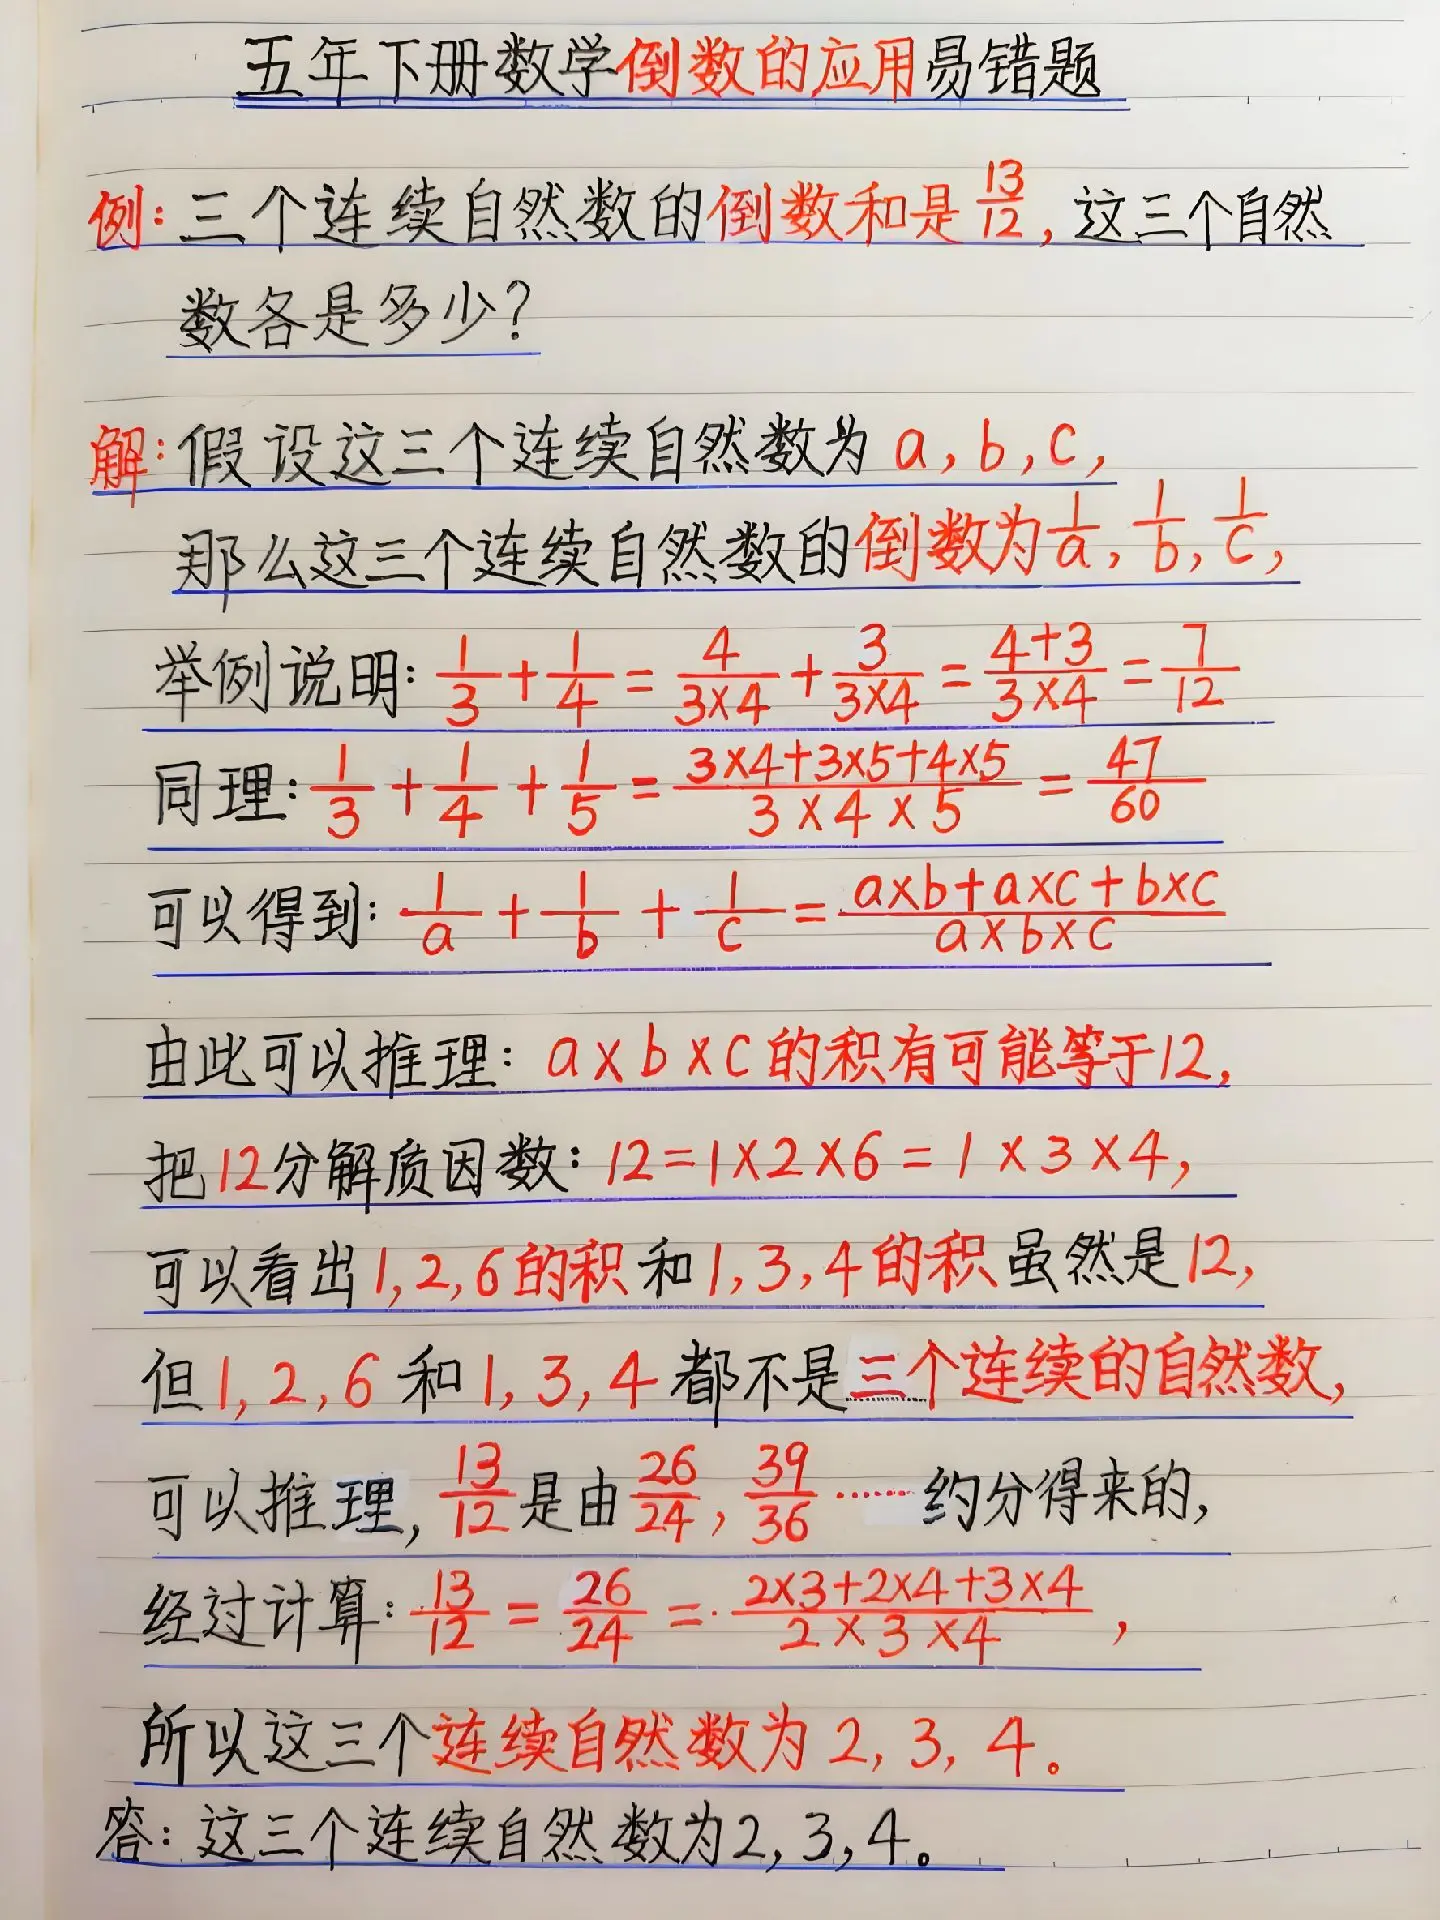 五年下册数学倒数的应用易错题
例:三个连续自然数的倒数和是13/12,这三个自然
数各是多少?
解:假设这三个连续自然数为a,b,c,
那么这三个连续自然数的倒数为1/a,1/b,1/c,
举例说明:1/3+1/4=4/3×4+3/3×4=4+3/3×4=7/12
同理:1/3+1/4+1/5=3×4+3×5+4×5/3×4×5=47/60
可以得到:1/a+1/b+1/c=a×b+a×c+b×c/a×b×c
由此可以推理:a×b×c的积有可能等于12,
把12分解质因数:12=1×2×6=1×3×4,
可以看出1,2,6的积和1,3,4的积虽然是12,
但1,2,6和1,3,4都不是三个连续的自然数,
可以推理,13/12是由26/24,39/36……约分得来的,
经过计算:13/12=26/24=2×3+2×4+3×4/2×3×4,
所以这三个连续自然数为2,3,4。
答:这三个连续自然数为2,3,4。